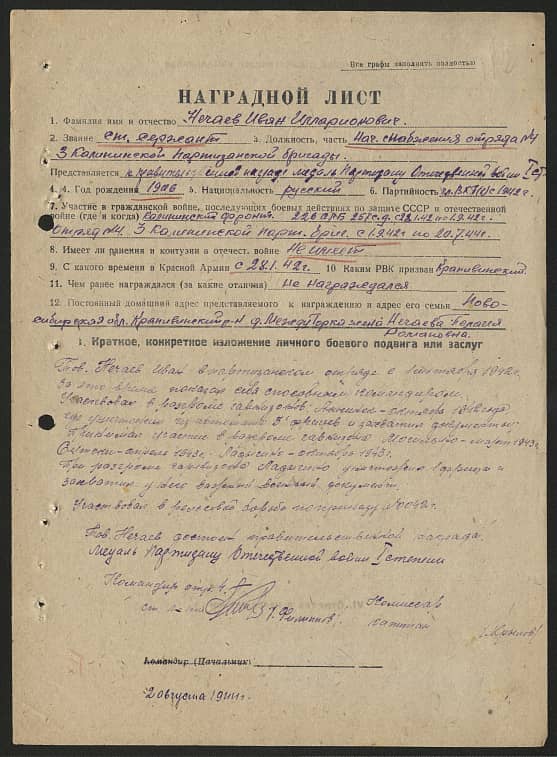 Все графы заполнять полностью
НАГРАДНОЙ ЛИСТ
1. Фамилия имя и отчество Нечаев Иван Илларионович.
2. Звание ст. сержант 3. Должность, часть Нач. снабжения отряда №4
3 Калининской Партизанской бригады.
Представляется к правительственной награде медаль Партизану Отечественной войны I ст.
4. 4. Год рождения 1906 5. Национальность русский 6. Партийность чл. ВКП(б) с 1942 г.
7. Участие в гражданской войне, последующих боевых действиях по защите СССР и отечественной
войне (где и когда) Калининский фронт. с 28.1.42 по 1.9.42 г.
Отряд №4. 3 Калининской парт. бриг. с 1.9.42 г. по 20.7.44 г.
8. Имеет ли ранения и контузии в отечест. войне Не имеет
9. С какого времени в Красной Армии с 28.1.42 г. 10 Каким РВК призван Крапивинский.
11. Чем ранее награждался (за какие отличия) не награждался
12. Постоянный домашний адрес представляемого к награждению и адрес его семьи Ново-
сибирская обл. Крапивинский р-н жена Нечаева
Романовна.
1. Краткое, конкретное изложение личного боевого подвига или заслуг
Тов. Нечаев Иван в партизанском отряде с 1 сентября 1942 г.
За это время показал себя способным командиром.
Участвовал в разгроме гарнизонов октября 1942 года,
где уничтожил из автомата 3 фрицев и захватил документы.
Принимал участие в разгроме гарнизона март 1943 г.
апреля 1943 г. октября 1943 г.
При разгроме гарнизона уничтожил 1 фрица и
захватил у него важный военный документ.
Участвовал в рельсовой борьбе по приказу №0042 г.
Тов. Нечаев достоин правительственной награды
Медаль Партизану Отечественной войны I степени
Командир отр. 4
ст. л-т /Филиппов/
Комиссар
капитан
/Крылов/
Командир (Начальник)
2 августа 1944 г.